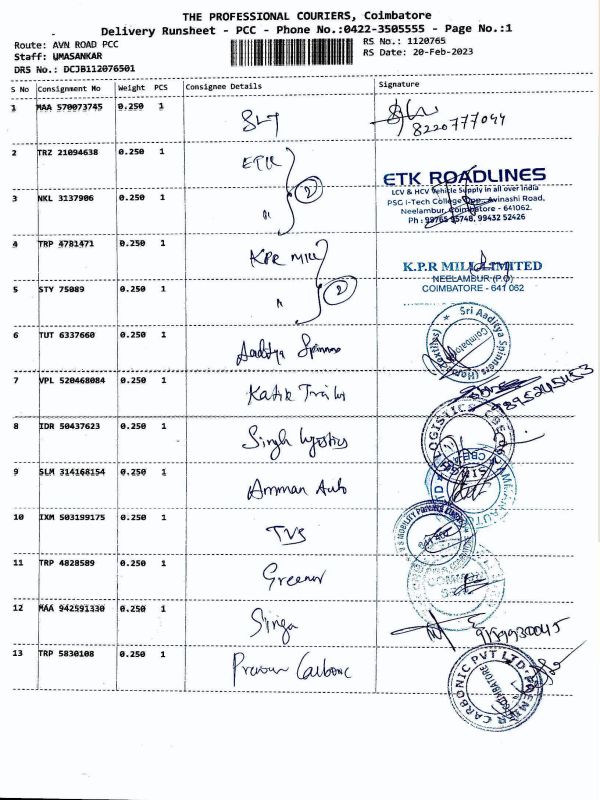 THE PROFESSIONAL COURIERS, Coimbatore
Delivery Runsheet - PCC - Phone No.:0422-3505555 - Page No.:1
Route: AVN ROAD PCC
RS No.: 1120765
Staff: UMASANKAR
RS Date: 20-Feb-2023
DRS No.: DCJB112076501
S No Consignment No Weight PCS Consignee Details Signature
1 MAA 570073745 0.250 1
8220777044
2 TRZ 21094638 0.250 1 ETK
2
ETK ROADLINES
LCV & HCV Vehicle Supply in all over India
PSG I-Tech College Opp., Avinashi Road,
Neelambur, Coimbatore - 641062.
Ph : 99765 85748, 99432 52426
3 NKL 3137906 0.250 1 "
4 TRP 4781471 0.250 1 KPR Mill
2
K.P.R MILL LIMITED
NEELAMBUR (P.O)
COIMBATORE - 641 062
5 STY 75089 0.250 1 "
6 TUT 6337660 0.250 1 Aaditya Spinners
Sri Aaditya Spinners
Coimbatore
7 VPL 520468084 0.250 1
8 IDR 50437623 0.250 1 Singh Logistics
LOGISTICS
9 SLM 314168154 0.250 1 Amman Auto
10 IXM 503199175 0.250 1 TVS
MOBILITY PRIVATE LIMITED
11 TRP 4828589 0.250 1
12 MAA 942591330 0.250 1 Singa
13 TRP 5830108 0.250 1 Premier Carbonic
PREMIER CARBONIC PVT LTD
COIMBATORE